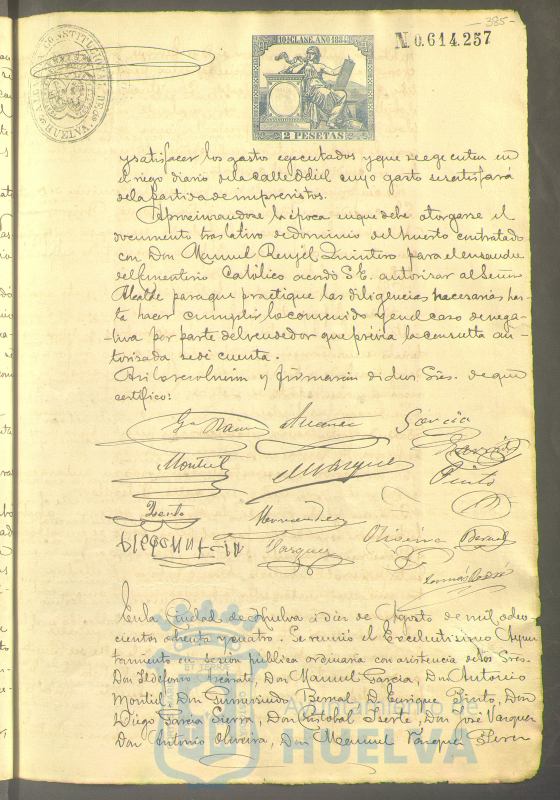 385-
ALCALDIA CONSTITUCIONAL DE HUELVA
10ª CLASE. AÑO 1884
N. 0.614.257
2 PESETAS
y satisfacer los gastos egecutados y que se egecuten en
el riego diario de la calle Odiel cuyo gasto se satisfará
de la partida de imprevistos.
Aproximandose la época en que debe otorgarse el
documento traslativo de dominio del huerto contratado
con Don Manuel Rengel Quintero para el ensanche
del Cementerio Católico acordó S.E. autorizar al Señor
Alcalde para que practique las diligencias necesarias has-
ta hacer cumplir lo convenido y en el caso de nega-
-tiva por parte del vendedor que prévia la consulta au-
torizada se dé cuenta.
Asi lo resolvieron y firmarán dichos Sres. de que
certifico:
Garcia
Garcia
Montiel
M Vazquez
Pinto
Hernandez
Vazquez
Oliveira
Bernal
En la Ciudad de Huelva á diez de Agosto de mil ocho-
cientos ochenta y cuatro. Se reunió el Excelentisimo Ayun-
tamiento en sesion publica ordinaria con asistencia de los Sres.
Don Ildefonso Don Manuel Garcia, Don Antonio
Montiel, Don Gumersindo Bernal, D. Enrique Pinto, Don
Diego Garcia Sierra, Don Cristobal Don José Vazquez
Don Antonio Oliveira, Don Manuel Vazquez Perez
Ayuntamiento de
HUELVA